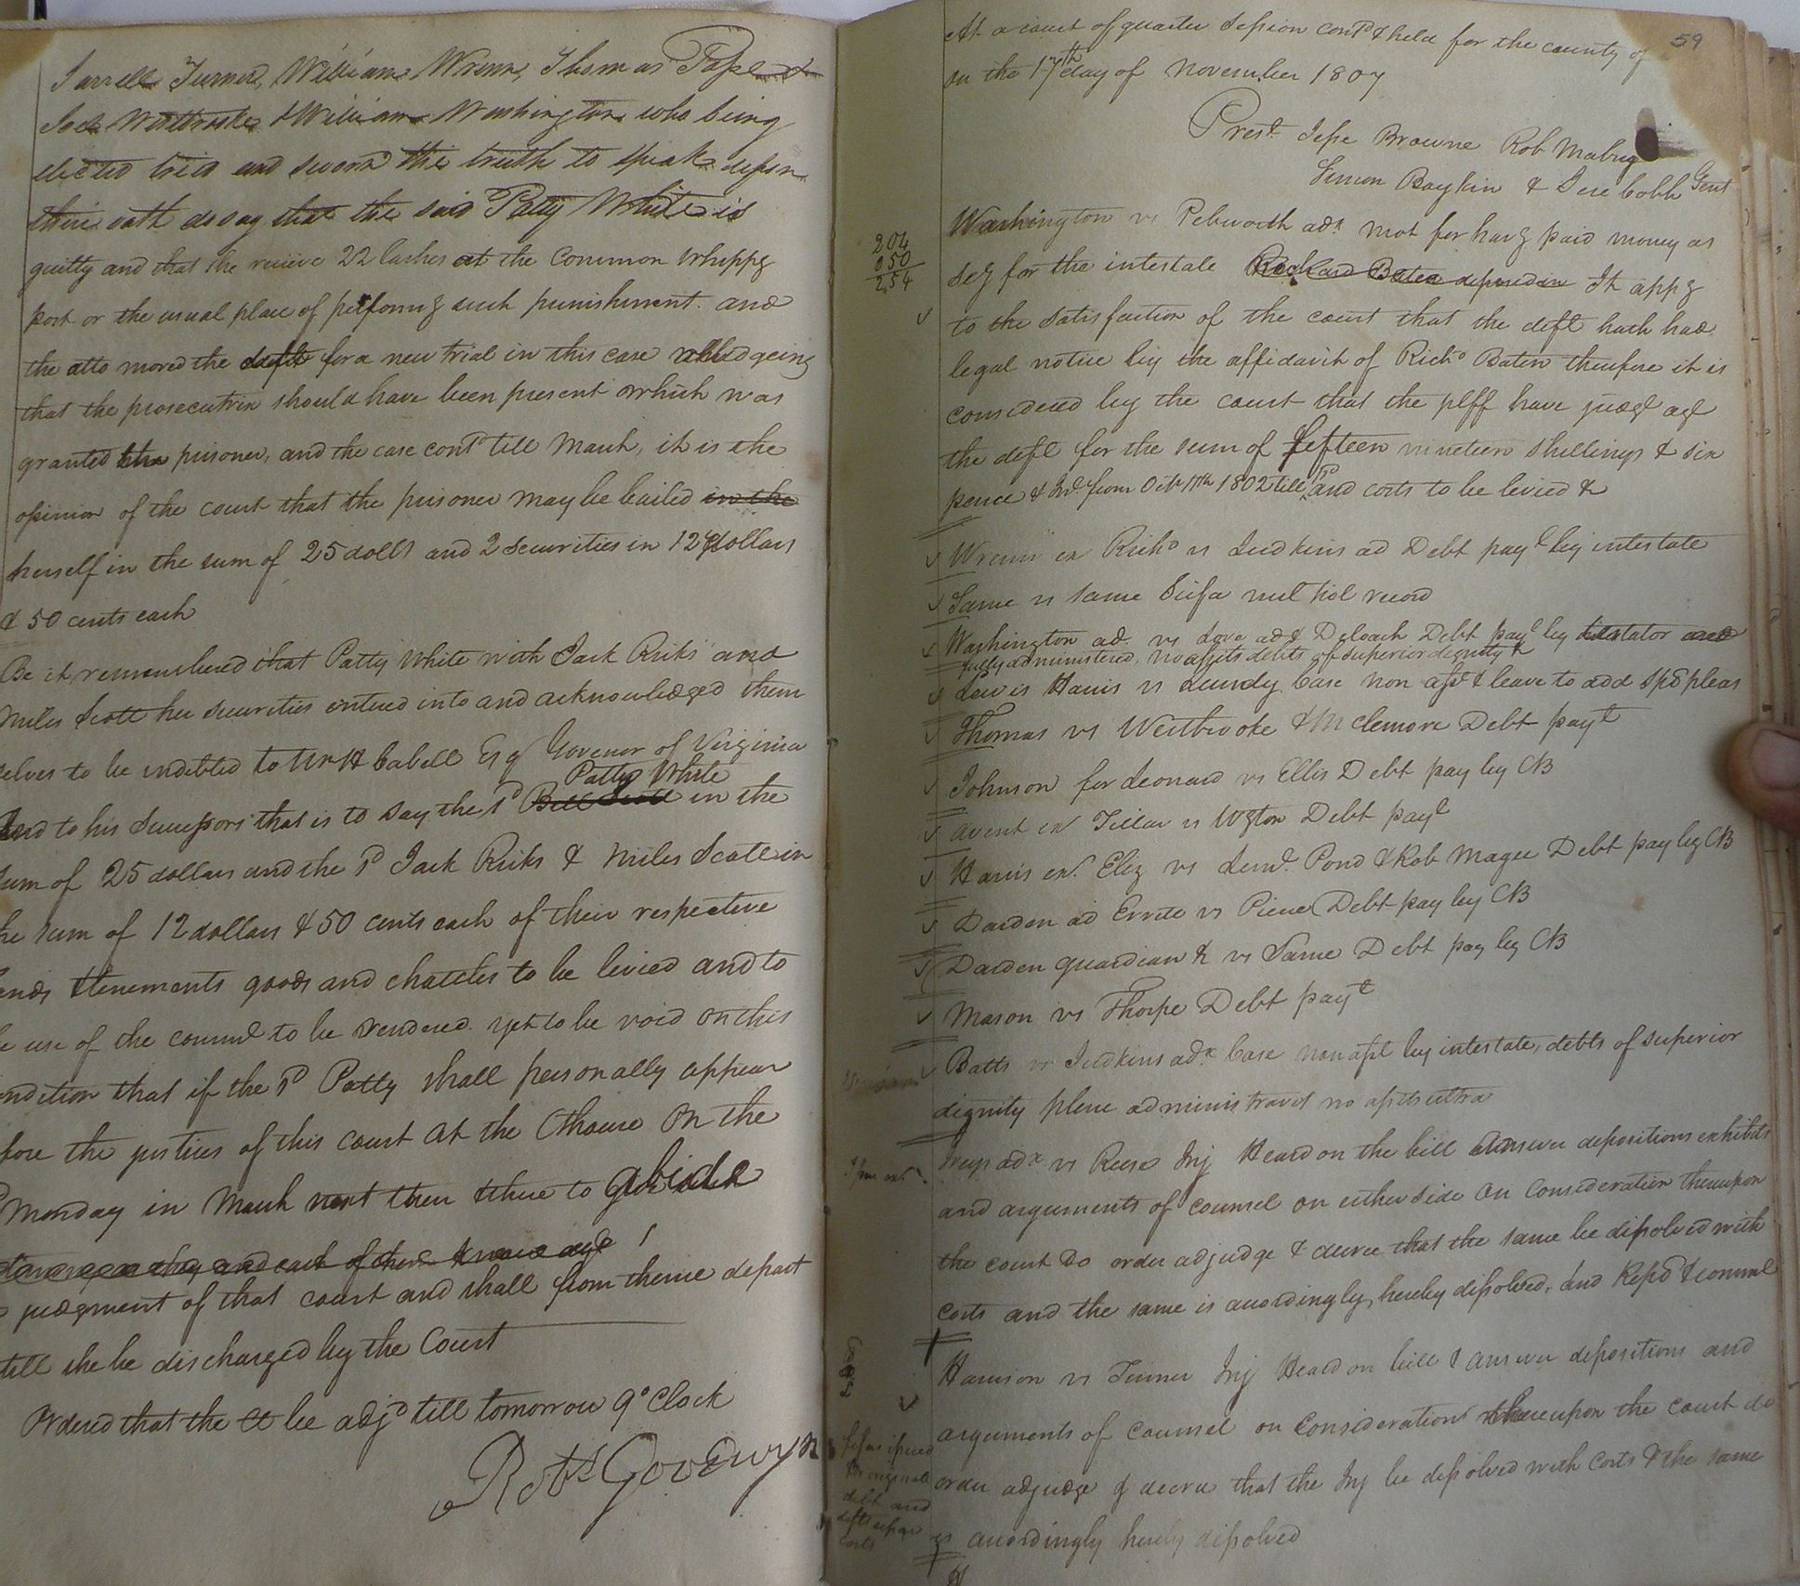 Jarrell Turner, William Wrenn, Thomas Pope &
Jack Westbrooke & William Washington who being
elected tried and sworn the truth to speak upon
their oath do say that the said Patty White is
guilty and that she recieve 22 lashes at the common whippg
post or the usual place of performg such punishment. and
the atto moved the for a new trial in this case
that the prosecutrix should have been present which was
granted the prisoner, and the case contd till March, it is the
opinion of the court that the prisoner may be bailed in the
herself in the sum of 25 dolls and 2 securities in 12 dollars
& 50 cents each
Be it remembered that Patty White with Jack Ricks and
Miles Scott her securities entered into and acknowledged them
selves to be indebted to Wm H Cabell Esq Govenor of Virginia
Patty White
and to his Successors that is to say the sd Bill Scott in the
sum of 25 dollars and the sd Jack Ricks & Miles Scott in
the sum of 12 dollars & 50 cents each of their respective
lands tenements goods and chattels to be levied and to
the use of the commth to be rendered. yet to be void on this
condition that if the sd Patty shall personally appear
before the justices of this court at the Chouse on the
Monday in March next then there to abide
they and each of them
judgment of that court and shall from thence depart
till she be discharged by the Court
Ordered that the Ct be adjd till tomorrow 9 oClock
Rots Goodwyn
59
At a court of quarter Session contd & held for the county of
on the 17th day of November 1807
Prest. Jesse Browne Rob Mabry
Simon Boykin & Jere Cobb Gent
Washington vs Pebworth adx mot for havg paid money as
204
050
254
secy for the intestate Richard Bates deposed in It appg
to the satisfaction of the court that the deft hath had
legal notice by the affidavit of Richd Baten therefore it is
considered by the court that the plff have judgt agt
the deft for the sum of fifteen nineteen shillings & six
pence & Int from Octr 11th 1802 till pd and costs to be levied &
Wrenn ex Richd vs Judkins ad Debt payt by intestate
Same vs same Scifa nul tiel record
Washington ad. vs Love adx Deloach Debt payt by testator and
fully administered, no assets debts of superior dignity &
Lewis Harris vs Lundy Case non asst & leave to add spd pleas
Thomas vs Westbrooke & McLemore Debt payt
Johnson for Leonard vs Ellis Debt pay by CB
Avent ex Tillar vs Wgton Debt payt
Harris ex. Eliz vs Lemd. Pond & Rob Magee Debt pay by CB
Darden ad Errite vs Pierce Debt pay by CB
Darden guardian & vs Same Debt pay by CB
Mason vs Thorpe Debt payt
Batts vs Judkins adx Case non asst by intestate, debts of superior
dignity plene administravit no assets ultra
adx vs Reese Inj Heard on the bill answer depositions exhibits
and arguments of counsel on either side on Consideration thereupon
the court do order adjudge & decree that the same be dissolved with
costs and the same is accordingly hereby dissolved, and
Harrison vs Turner Inj Heard on bill & answer depositions and
arguments of counsel on consideration thereupon the court do
order adjudge & decree that the Inj be dissolved with costs & the same
is accordingly hereby dissolved
Copy
issued
for original
debt and
costs